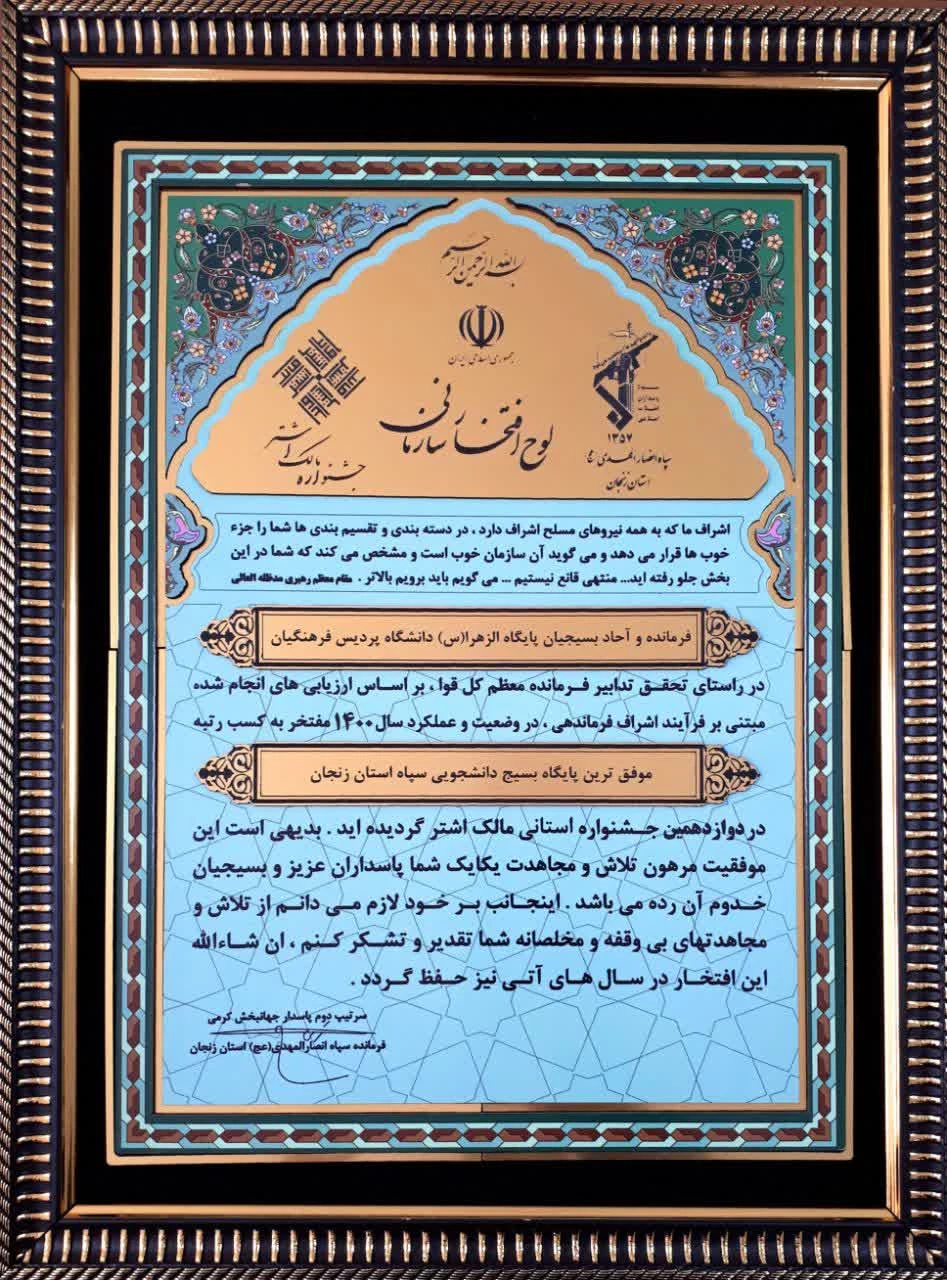 بسم الله الرحمن الرحیم
جمهوری اسلامی ایران
لوح افتخار سازمانی
جشنواره مالک اشتر
۱۳۵۷
سپاه انصار المهدی (عج)
استان زنجان
اشراف ما که به همه نیروهای مسلح اشراف دارد ، در دسته بندی و تقسیم بندی ها شما را جزء
خوب ها قرار می دهد و می گوید آن سازمان خوب است و مشخص می کند که شما در این
بخش جلو رفته اید... منتهی قانع نیستیم ... می گویم باید برویم بالاتر . مقام معظم رهبری مدظله العالی
فرمانده و آحاد بسیجیان پایگاه الزهرا(س) دانشگاه پردیس فرهنگیان
در راستای تحقق تدابیر فرمانده معظم کل قوا ، بر اساس ارزیابی های انجام شده
مبتنی بر فرآیند اشراف فرماندهی ، در وضعیت و عملکرد سال ۱۴۰۰ مفتخر به کسب رتبه
موفق ترین پایگاه بسیج دانشجویی سپاه استان زنجان
در دوازدهمین جشنواره استانی مالک اشتر گردیده اید . بدیهی است این
موفقیت مرهون تلاش و مجاهدت یکایک شما پاسداران عزیز و بسیجیان
خدوم آن رده می باشد . اینجانب بر خود لازم می دانم از تلاش و
مجاهدتهای بی وقفه و مخلصانه شما تقدیر و تشکر کنم ، ان شاءالله
این افتخار در سال های آتی نیز حفظ گردد .
سرتیپ دوم پاسدار جهانبخش کرمی
فرمانده سپاه انصارالمهدی(عج) استان زنجان